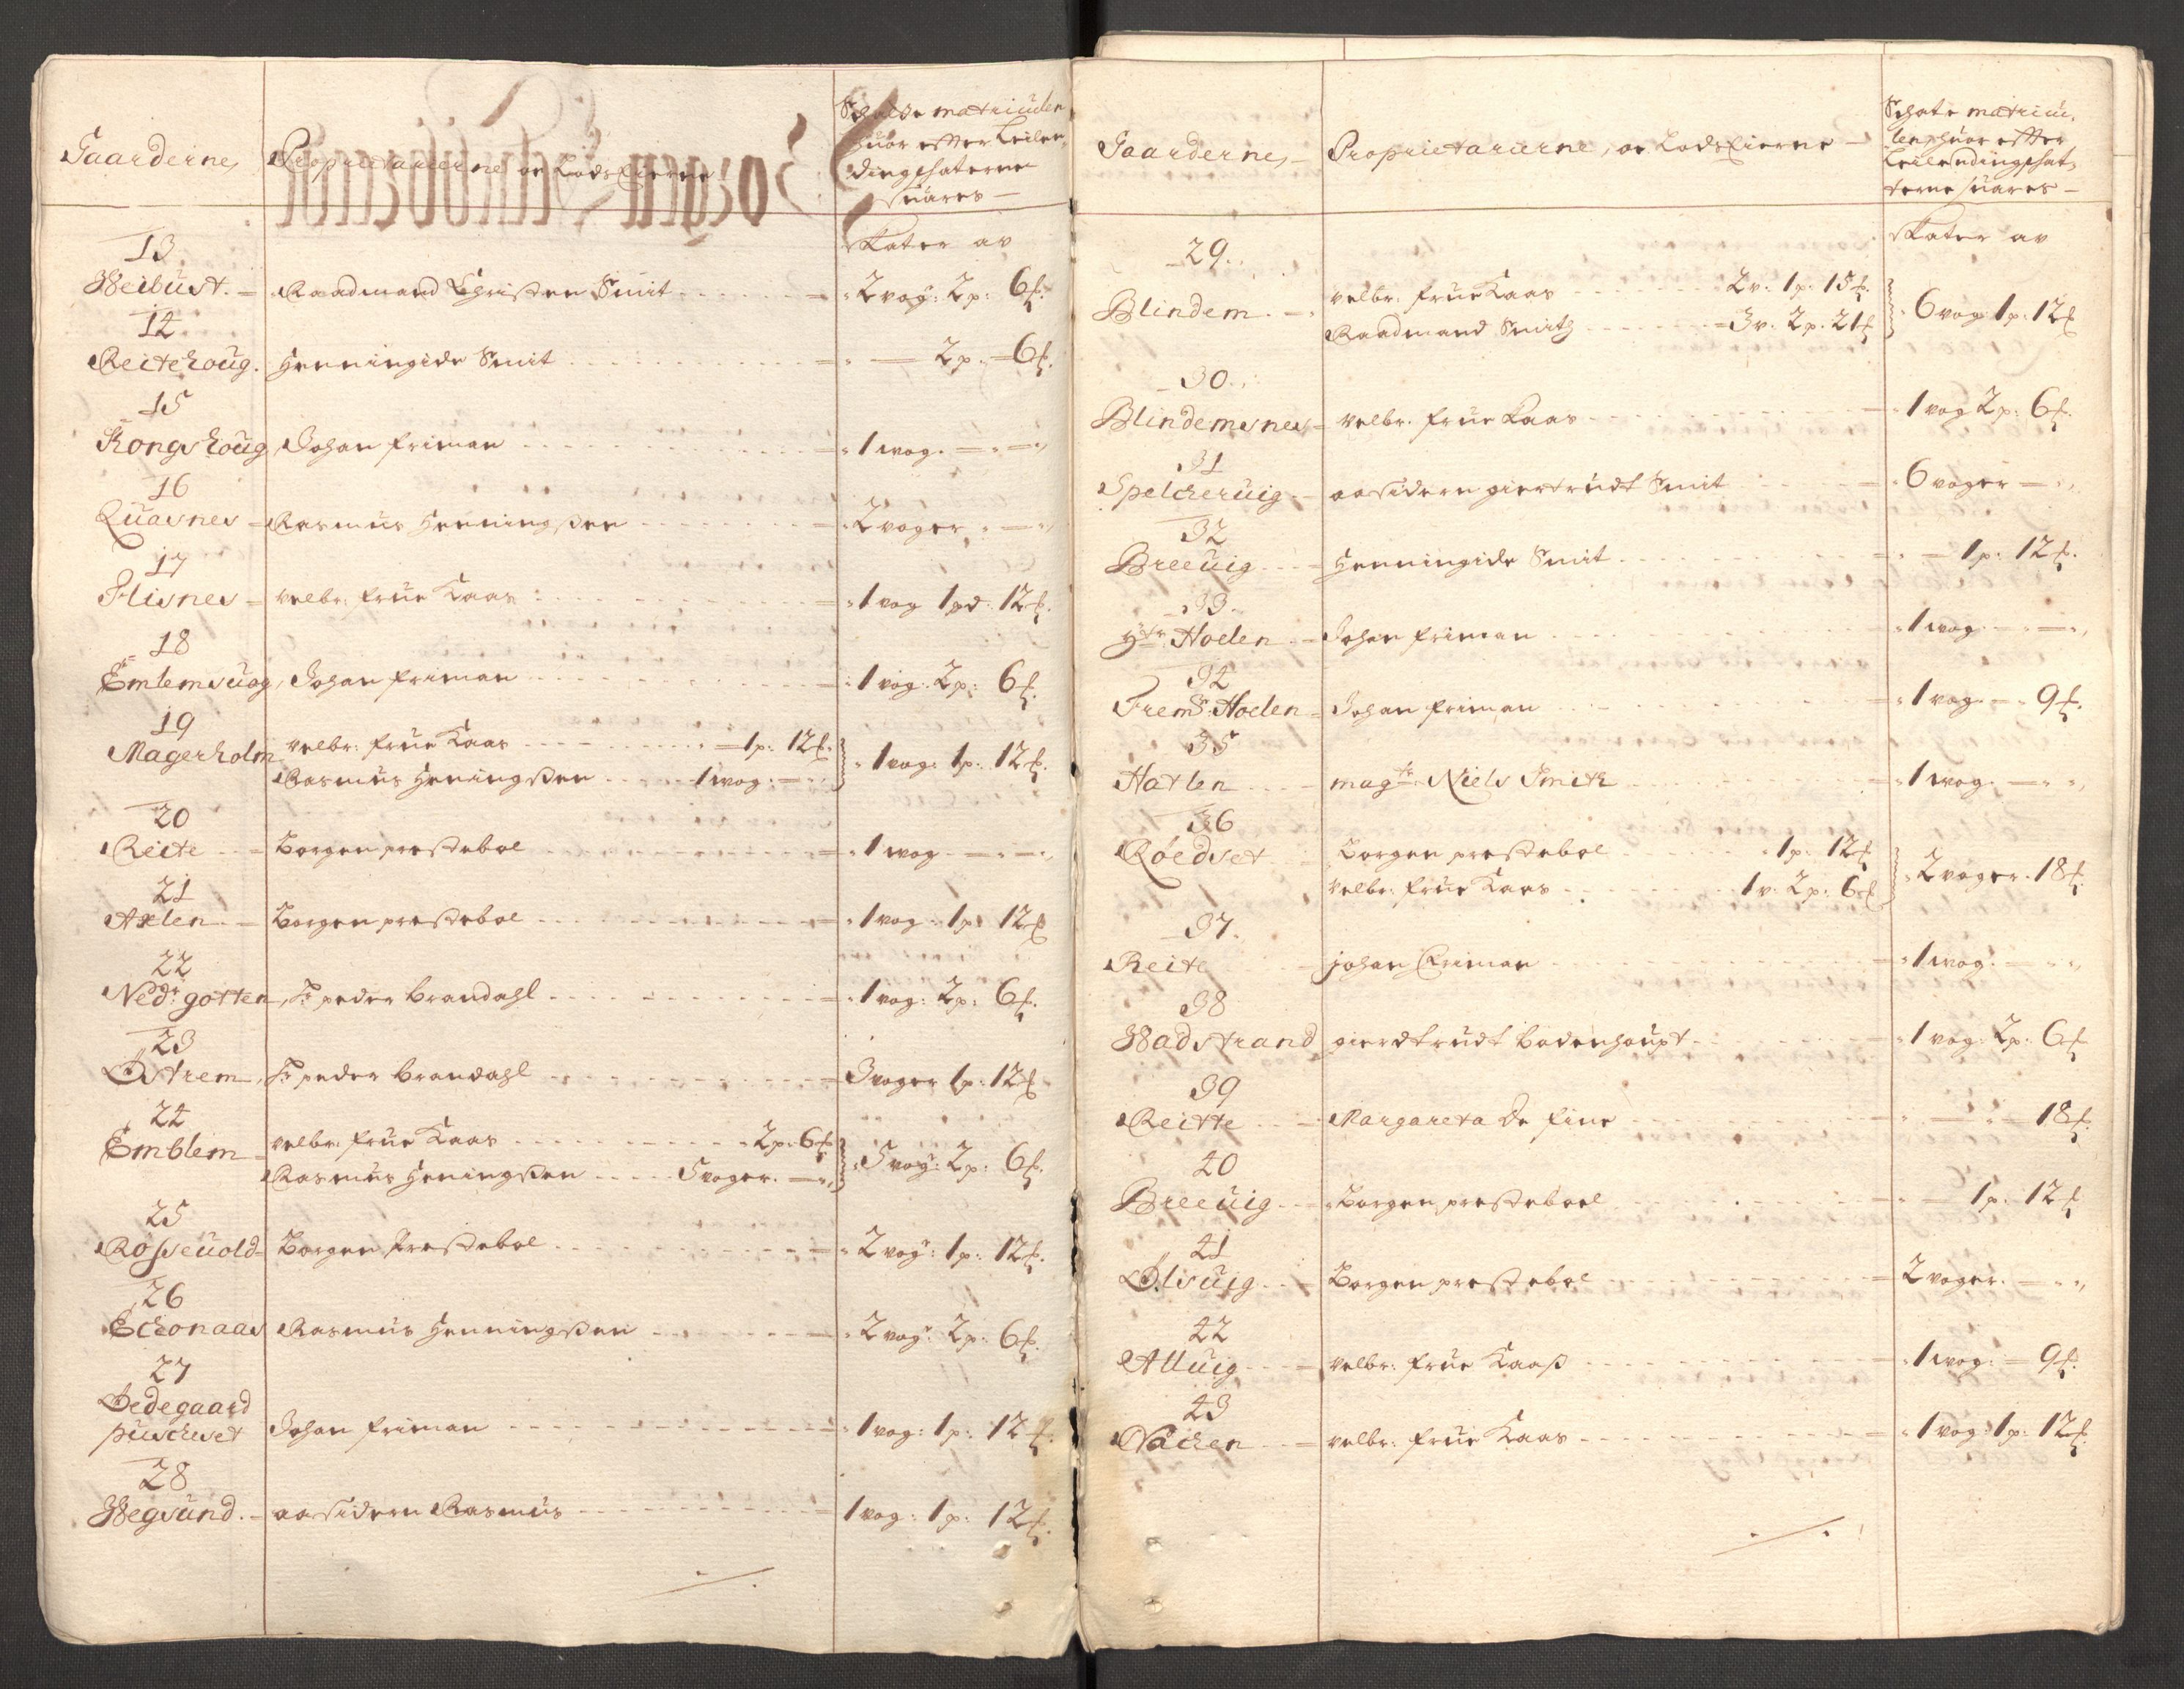 Gaarderne,
Proprietarierne oc Lodseierne
Schatte matriculen
huor effter Leilen-
dingschaterne
suares
Skater av
13
Weibust. Raadmand Christen Smit 2 vog: 2 p: 6 ℔.
14
Reitehoug. Henningide Smit 2 p. 6 ℔.
15
Kongshoug Johan friman 1 wog.
16
Quasnes Rasmus Henningßen 2 voger
17
Flisnes velbr: frue Kaas 1 vog 1 pd: 12 ℔.
18
Emlemsuog, Johan friman 1 vog: 2 p: 6 ℔.
19
Magerholm velbr: frue Kaas 1 p: 12 ℔.
Rasmus Heningßen 1 wog: 1 vog: 1 p: 12 ℔.
20
Reite Borgen presteboe 1 wog
21
Axlen Borgen presteboe 1 vog: 1 p: 12 ℔
22
Nedr: gotten, Hr peder Brandahl 1 vog: 2 p: 6 ℔.
23
Østrem, Hr peder Brandahl 3 voger 1 p: 12 ℔
24
Emblem velbr: frue Kaas 2 p: 6 ℔
Rasmus Heningßen 5 voger. 5 vog: 2 p: 6 ℔.
25
Røsseuold Borgen Presteboe 2 vog: 1 p: 12 ℔.
26
Echonaas Rasmus Henningßen 2 vog: 2 p: 6 ℔.
27
Ødegaard
puscheset Johan friman 1 vog: 1 p: 12 ℔.
28
Wegsund. assidern Rasmus 1 vog: 1 p: 12 ℔.
Gaarderne,
Proprietarierne, oc Lodseierne
Schate matricu-
len, huor effter
Leilendingschat-
terne suares
Skater av
29.
Blindem. velbr: frue Kaas 2 v: 1 p: 15 ℔.
Raadmand Smitz 3 v. 2 p. 21 ℔ 6 vog 1 p: 12 ℔
30.
Blindemsnes velbr. frue Kaas 1 vog 2 p: 6 ℔.
31
Spelcheruig assidern giertrudt Smit 6 voger
32
Breeuig Henningide Smit 1 p: 12 ℔.
33.
Ytr. Hoelen Johan friman 1 wog
34
Fremr. Hoelen Johan friman 1 vog. 9 ℔.
35
Hatlen magr. Niels Smith 1 wog.
36
Røedset Borgen presteboe 1 p: 12 ℔
velbr: frue Kaas 1 v: 2 p: 6 ℔ 2 voger. 18 ℔.
37.
Reite johan Friman 1 wog
38
Wadstrand gierdtrudt Bodenhoupt 1 vog: 2 p: 6 ℔
39
Reitte Margareta De fine 18 ℔.
40
Breeuig Borgen presteboel 1 p: 12 ℔
41
Ølsuig Borgen presteboe 2 voger.
42
Alluig velbr: frue Kaaß 1 wog: 9 ℔.
43
Nachen velbr: frue Kaas 1 vog: 1 p: 12 ℔.